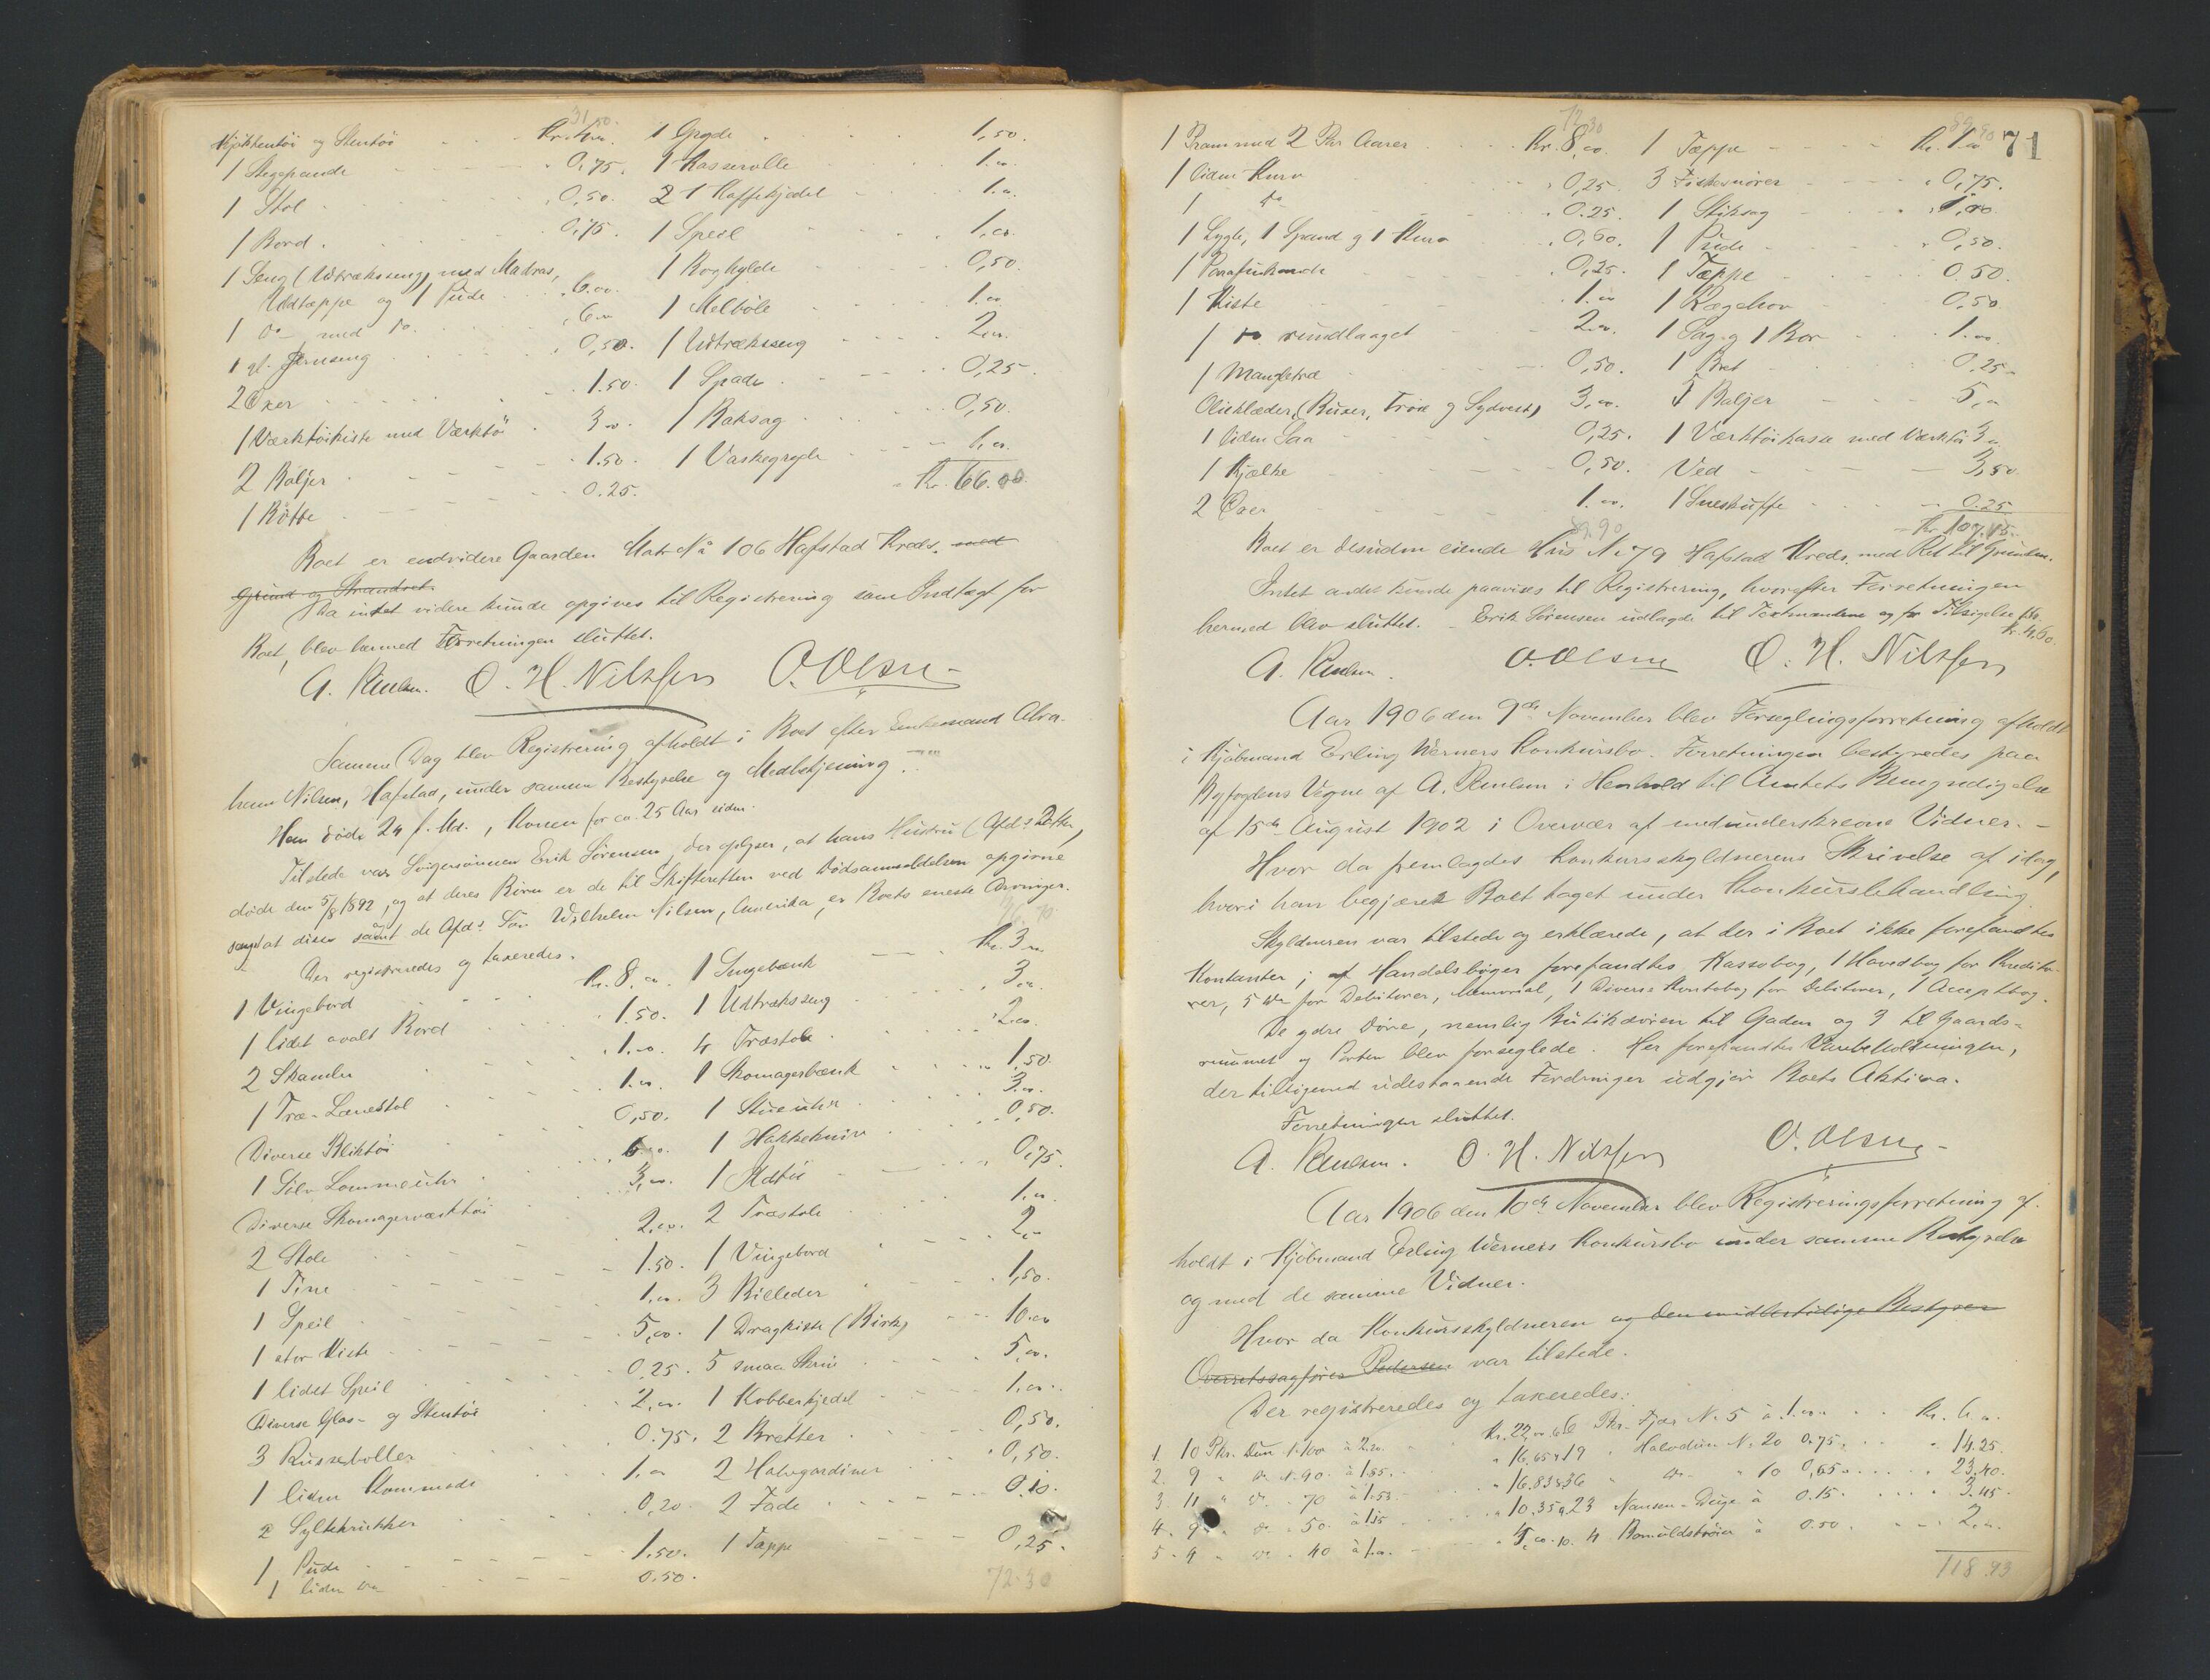 31.50
Kjøkkentøi og Stentøi Kr. 4.00. 1 Gryde 1,50.
1 Stegepande 0,75. 1 Kasserolle 1.00
1 Stol 0,50. 2 1 Kaffekjedel 1.00
1 Bord 0,75. 1 Speil 1.00.
1 Seng (Udtræksseng) med Madras, 1 Boghylde 0,50.
Uldtæppe og 1 Pude 6.00. 1 Melbøle 1.00
1 do med do. 6.00 1 Udtræksseng 2.00.
1 gl. Jernseng 0,50. 1 Spade 0,25
2 Øxer 1.50. 1 Baksag 0,50.
1 Værktøikiste med Værktøi 3.00. 1 Vaskegryde 6.00.
2 Baljer 1.50. Kr. 66.00.
1 Bøtte 0.25.
Boet er endvidere Gaarden Matr No 106 Hafstad Kreds. med
Grund og Strandret.
Da intet videre kunde opgives til Registrering som Indtægt for
Boet, blev hermed Forretningen sluttet.
A. Paulsen. O. H. Nilssen O. Olsen
Samme Dag blev Registrering afholdt i Boet efter Enkemand Abra-
ham Nilsen, Hafstad, under samme Bestyrelse og Medbetjening.
Han døde 24 f. Md., Konen for ca. 25 Aar siden.
Tilstede var Svigersønnen Erik Sørensen, der oplyser, at hans Hustru (Afds Datter,
døde den 5/8 1892, og at deres Børn er de til Skifteretten ved Dødsanmeldelsen opgivne
samt at disse samt de Afds Søn Wilhelm Nilsen, Amerika, er Boets eneste Arvinger.
Der registreredes og taxeredes.
1 Vingebord Kr. 8.00 1 Sengebænk Kr. 3.00
1 lidet ovalt Bord 1.50. 1 Udtræksseng 3.00.
2 Skamler 1.00. 4 Træstole 2.00.
1 Træ-Lænestol 1.00. 1 Skomagerbænk 1.50
Diverse Bliktøi 0,50. 1 Stueuhr 3.00.
1 Sølv Lommeuhr 6.00. 1 Hakkekniv 0,50.
Diverse Skomagerværktøi 3.00. 1 Ildtøi 0,75.
2 Stole 2.00. 2 Træstole 1.00.
1 Tine 1.50. 1 Vingebord 2.00
1 Speil 1.00. 3 Billeder 1,50.
1 stor Kiste 5.00. 1 Dragkiste (Birk) 10.00
1 lidet Speil 0.25. 5 smaa Skrin 5.00.
Diverse Glas- og Stentøi 2.00. 1 Kobberkjedel 1.00.
3 Russeboller 0.75. 2 Bretter 0,50.
1 liden Kommode 1.00 2 Halvgardiner 0,50.
2 Syltekrukker 0,20. 2 Fade 0.10.
1 Pude 1.50. 1 Tæppe 0,25.
1 liden do 0.50. 72.30
72.30 89.90 71
1 Pram med 2 Par Aarer Kr. 8,00. 1 Tæppe Kr. 1.00
1 liden Kurv 0,25. 3 Fiskesnører 0,75.
1 do 0.25. 1 Stiksag 1,00
1 Lygte, 1 Spand og 1 Kurv 0,60. 1 Pude 0,50.
1 Parafinkande 0,25. 1 Tæppe 0.50.
1 Kiste 1.00 1 Rægehov 0.50
1 do rundlaaget 2.00. 1 Sag og 1 Bor 1.00.
1 Mangletræ 0,50. 1 Bret 0.25
Olieklæder (Buxer, Trøie og Sydvest) 3,00. 5 Baljer 5,00
1 liden Saa 0,25. 1 Værktøikasse med Værktøi 3.00
1 Kjælke 0,50. Ved 3,50.
2 Øxer 1.00. 1 Sneskuffe 0.25
89.90 Kr. 107.15.
Boet er desuden eiende Hus No 79 Hafstad Kreds, med Ret til Grunden.
Intet andet kunde paavises til Registrering, hvorefter Forretningen
hermed blev sluttet. – Erik Sørensen udlagde til Taxtmændene og for Tilsigelse
Kr. 4.60.
A. Paulsen. O. Olsen O. H. Nilssen
Aar 1906 den 9de November blev Forseglingsforretning afholdt
i Kjøbmand Erling Werners Konkursbo. Forretningen bestyredes paa
Byfogdens Vegne af A. Paulsen i Henhold til Amtets Bemyndigelse
af 15de August 1902 i Overvær af medunderskrevne Vidner. –
Hvor da fremlagdes Konkursskyldnerens Skrivelse af idag,
hvori han begjærer Boet taget under Konkursbehandling.
Skyldneren var tilstede og erklærede, at der i Boet ikke forefandtes
Kontanter; af Handelsbøger forefandtes Kassabog, 1 Hovedbog for Kredito-
rer, 5 do for Debitorer, Memorial, 1 Diverse Kontobog for Debitorer, 1 Acceptbog.
De ydre Døre, nemlig Butikdøren til Gaden og 3 til Gaards-
rummet og Porten blev forseglede. Her forefandtes Varebeholdningen,
der tilligemed udestaaende Fordringer udgjør Boets Aktiva.
Forretningen sluttet.
A. Paulsen. O. H. Nilssen O. Olsen
Aar 1906 den 10de November blev Registreringsforretning af-
holdt i Kjøbmand Erling Werners Konkursbo under samme Bestyrelse
og med de samme Vidner.
Hvor da Konkursskyldneren og den midlertidige Bestyrer
Overretssagfører Pedersen var tilstede.
Der registreredes og taxeredes:
1. 10 Pkr. Dun No 100 à 2.20. Kr. 22,00. 6. 6 Pkr. Fjær No 5 à 1.00. Kr. 6.00.
2. 9 " do No 90. à 1.85. 16,65. 7. 19 " Halvdun No 20 0.75. 14.25.
3. 11 " do " 70 à 1.53 16.83. 8. 36 " do " 10 0,65. 23.40.
4. 9 " do " 50. à 1.15 10.35. 9. 23 Nansen-Duge à 0.15. 3.45.
5. 4 " do " 40 à 1.00. 4,00. 10. 4 Bomuldstrøier à 0.50. 2.00.
118.93